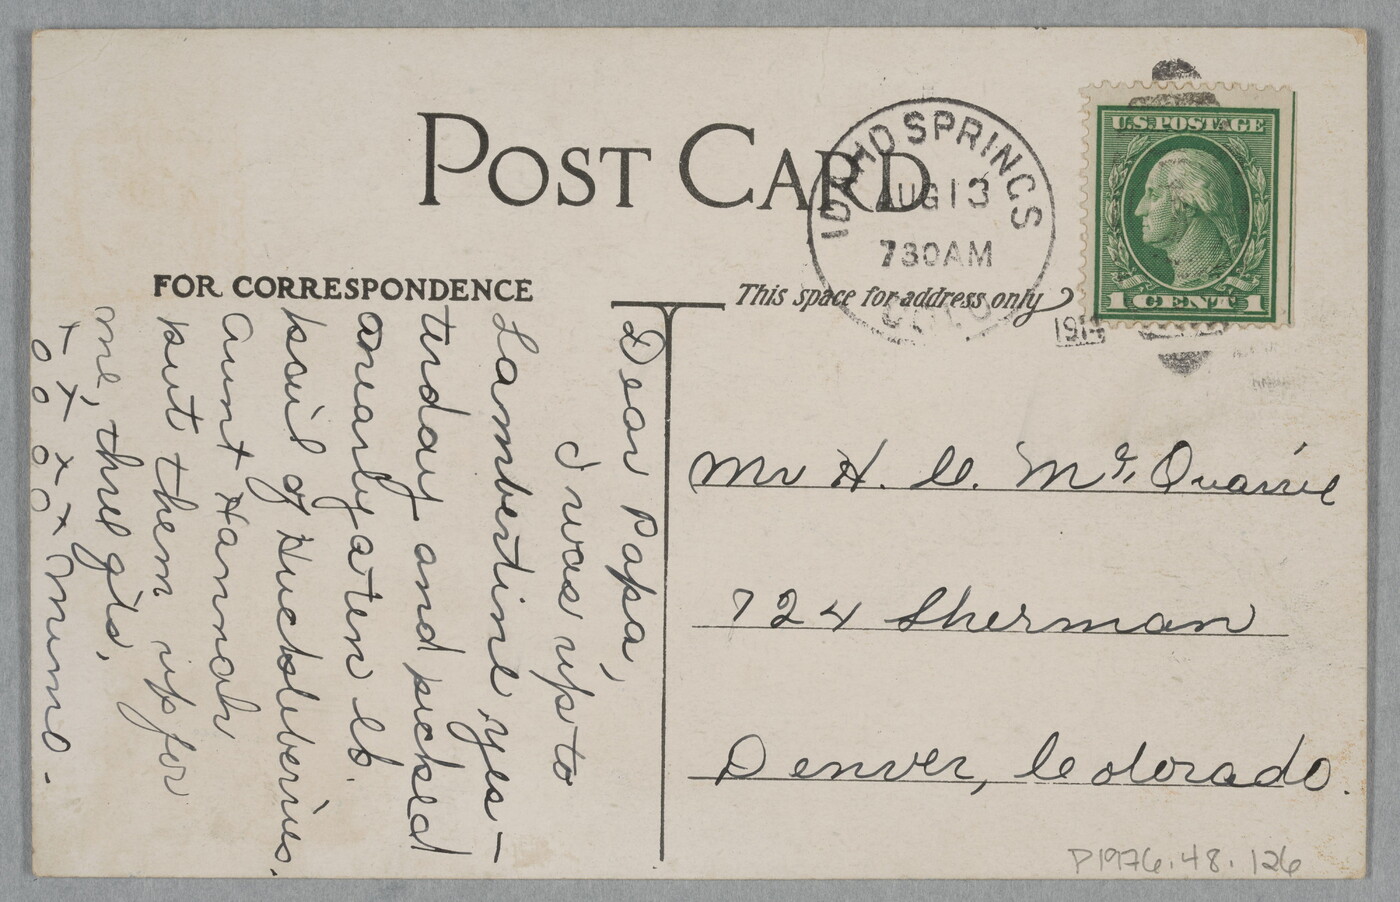 POST CARD
IDAHO SPRINGS
AUG 13
730AM
COLO.
1914
U.S. POSTAGE
1 CENT 1
FOR CORRESPONDENCE
This space for address only
Dear Papa,
I was up to
Lambertine yes-
terday and picked
a nearly a ten lb.
pail of Huckleberries.
Aunt Hannah
put them up for
me, three qts.
x x x x Mumo.
o o o o
Mr H. C. Mc. Quarrie
724 Sherman
Denver, Colorado.
P1976.48.126